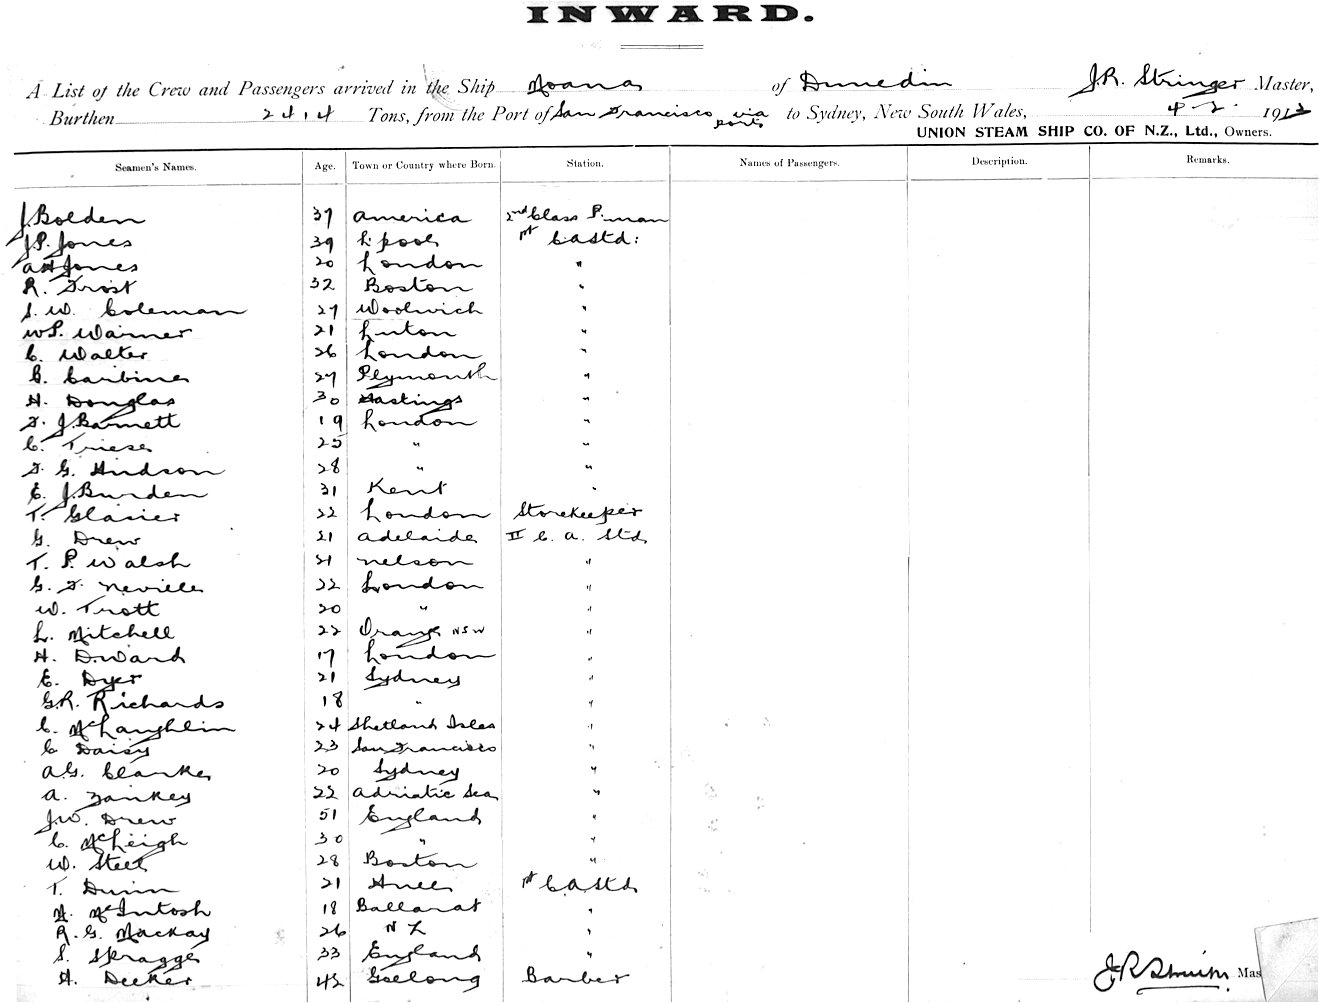 INWARD.
A List of the Crew and Passengers arrived in the Ship Moana of Dunedin J.R. Stringer Master,
Burthen 2414 Tons, from the Port of San Francisco via ports to Sydney, New South Wales, 4-2- 1912
UNION STEAM SHIP CO. OF N.Z., Ltd., Owners.
Seamen's Names. Age. Town or Country where Born. Station. Names of Passengers. Description. Remarks.
J. Bolden 37 America 2nd Class P.man
J.P. Jones 39 L.pool 1st C.A Std:
A H Jones 20 London "
R. Frost 32 Boston "
S. W. Coleman 27 Woolwich "
W.P. Warner 21 Luton "
C. Walter 26 London "
C. Carbines 27 Plymouth "
H. Douglas 30 Hastings "
F. J. Barnett 19 London "
C. 25 " "
F. G. Hudson 28 " "
E. J. Burden 31 Kent "
T. Glasier 22 London Storekeeper
G. Drew 21 Adelaide II C. A. Std
T. P. Walsh 21 Nelson "
G. F. Neville 22 London "
W. Trott 20 " "
L. Mitchell 22 Orange NSW "
H. D. Ward 17 London "
E. Dyer 21 Sydney "
G.R. Richards 18 " "
C. McLaughlin 24 Shetland Isles "
C Daisy 23 San Francisco "
A.G. Clarke 20 Sydney "
A. Zankey 22 Adriatic Sea "
J.W. Drew 51 England "
C. McLeigh 30 " "
W. Steel 28 Boston "
T. Dunn 21 1st C.A Std
McIntosh 18 Ballarat "
R. G. Mackay 26 N Z "
S. Skragge 33 England "
H. Decker 42 Geelong Barber
J R Mas